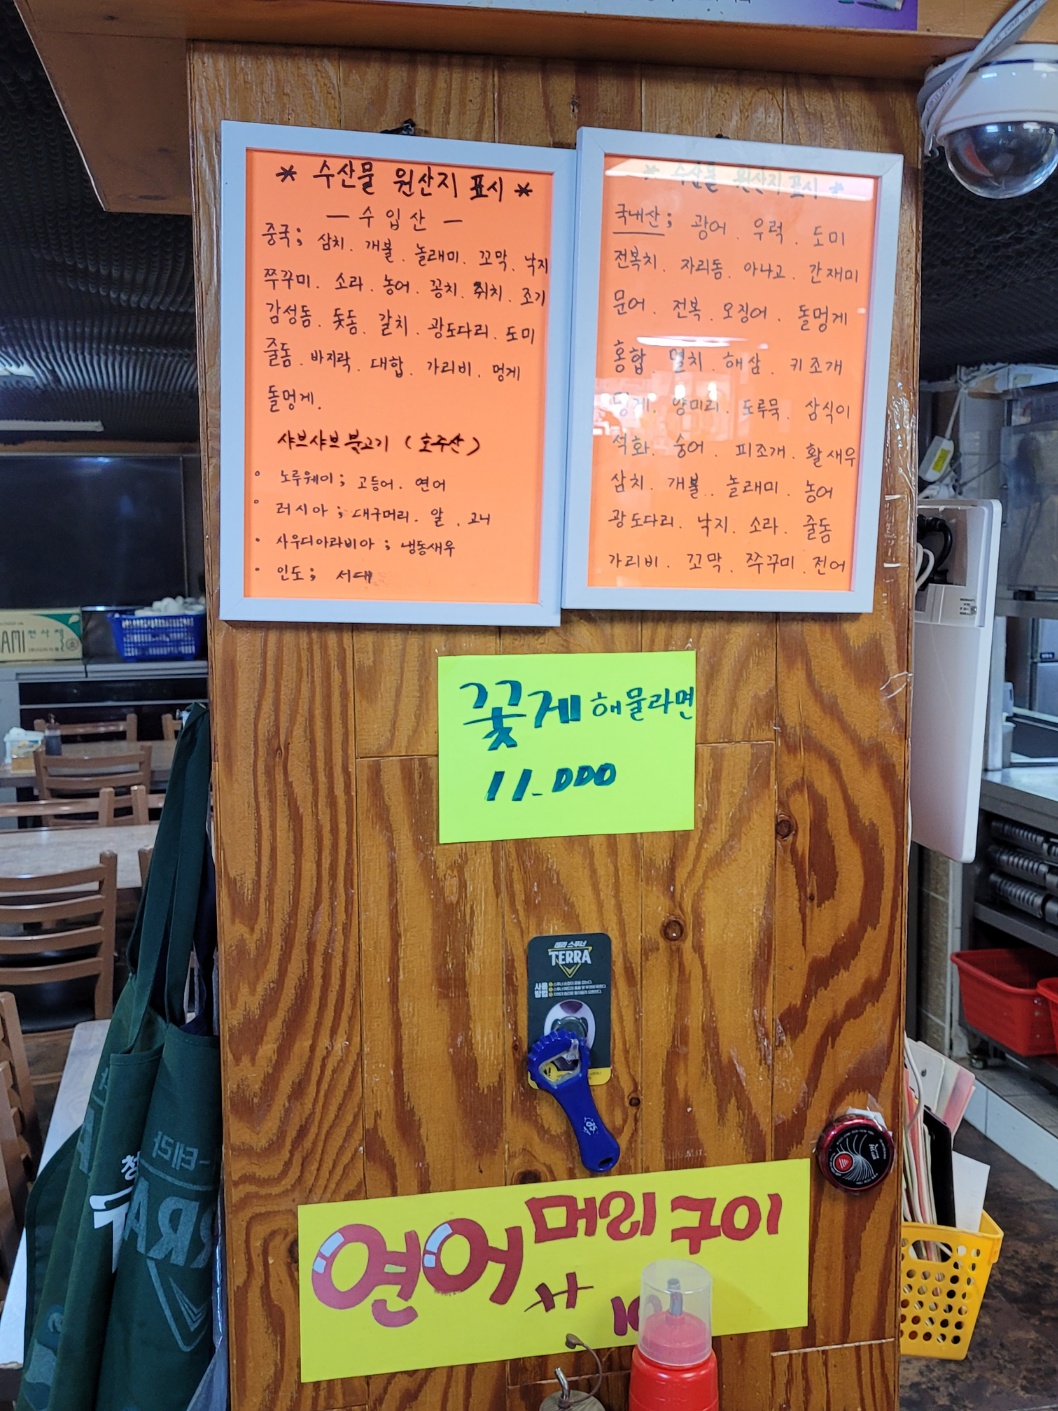 * 수산물 원산지 표시 *
— 수입산 —
중국; 삼치. 개불. 놀래미. 꼬막. 낙지
쭈꾸미. 소라. 농어. 꽁치. 쥐치. 조기
감성돔. 돗돔. 갈치. 광도다리. 도미
줄돔. 바지락. 대합. 가리비. 멍게
돌멍게.
샤브샤브 불고기 (호주산)
• 노루웨이; 고등어. 연어
• 러시아; 대구머리. 알. 고니
• 사우디아라비아; 냉동새우
• 인도; 서대
* 수산물 원산지 표시 *
국내산; 광어. 우럭. 도미
전복치. 자리돔. 아나고. 간재미
문어. 전복. 오징어. 돌멍게
홍합. 멸치. 해삼. 키조개
멍게. 양미리. 도루묵. 삼식이
석화. 숭어. 피조개. 활새우
삼치. 개불. 놀래미. 농어
광도다리. 낙지. 소라. 줄돔
가리비. 꼬막. 쭈꾸미. 전어
꽃게 해물라면
11.000
TERRA
연어 머리구이